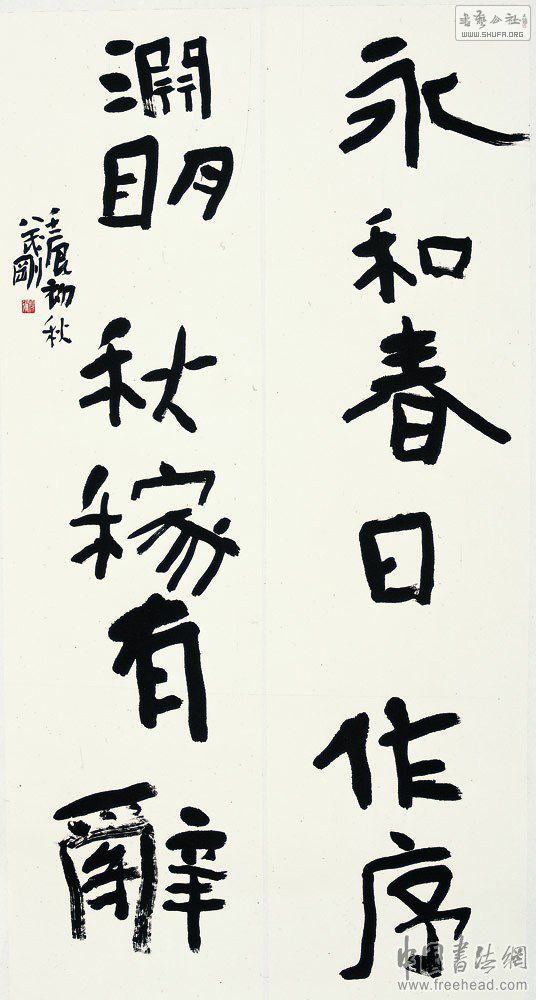 永和春日作序
淵明秋稼有辭
壬辰初秋
剛
書法公社
WWW.SHUFA.ORG
中国书法網
www.freehead.com